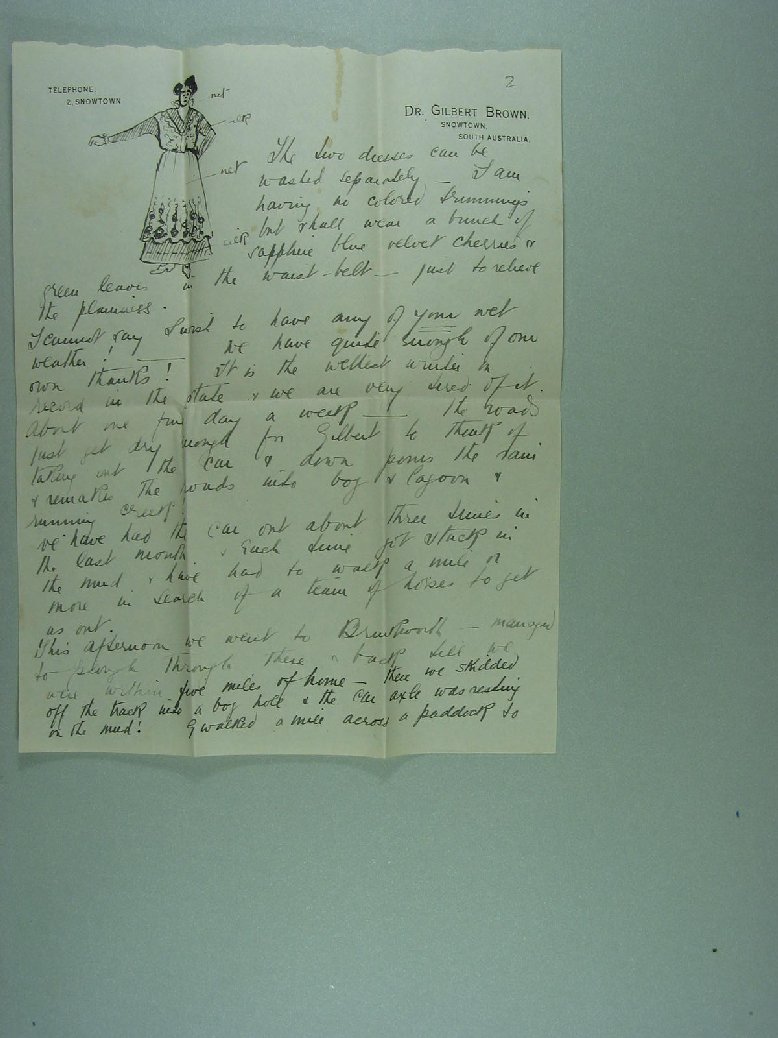 2
TELEPHONE,
2, SNOWTOWN
DR. GILBERT BROWN.
SNOWTOWN,
SOUTH AUSTRALIA.
net
silk
net
silk
The two dresses can be
washed separately — I am
having no colored trimmings
but shall wear a bunch of
sapphire blue velvet cherries &
green leaves in the waist-belt — just to relieve
the plainness.
I cannot say I wish to have any of your wet
weather! — We have quite enough of our
own thanks! It is the wettest winter on
record in the state & we are very tired of it.
About one fine day a week — The roads
just get dry enough for Gilbert to think of
taking out the car & down pours the rain
& remakes the roads into bog & lagoon &
running creek!
We have had the car out about three times in
the last month & each time got stuck in
the mud & have had to walk a mile or
more in search of a team of horses to get
us out.
This afternoon we went to Brinkworth — managed
to plough through there & back till we
were within five miles of home — then we skidded
off the track into a bog hole & the car axle was resting
on the mud! G walked a mile across a paddock to